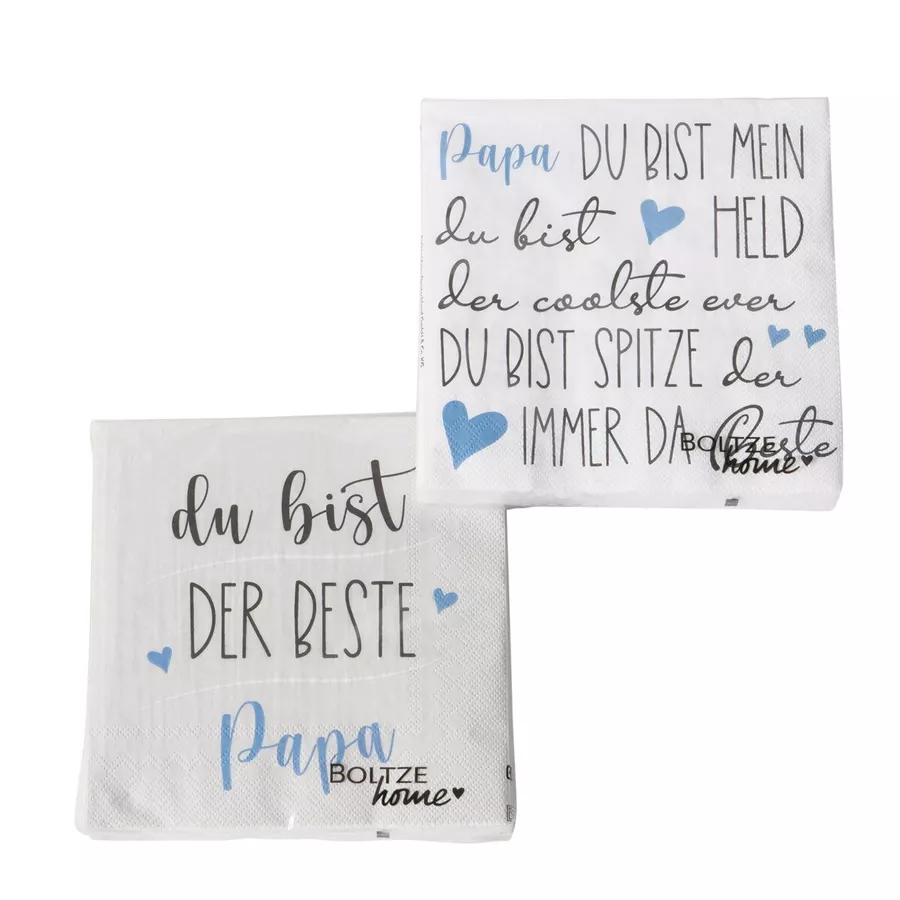 Papa DU BIST MEIN
du bist HELD
der coolste ever
DU BIST SPITZE der
IMMER DA Beste
BOLTZE
home
du bist
DER BESTE
Papa
BOLTZE
home